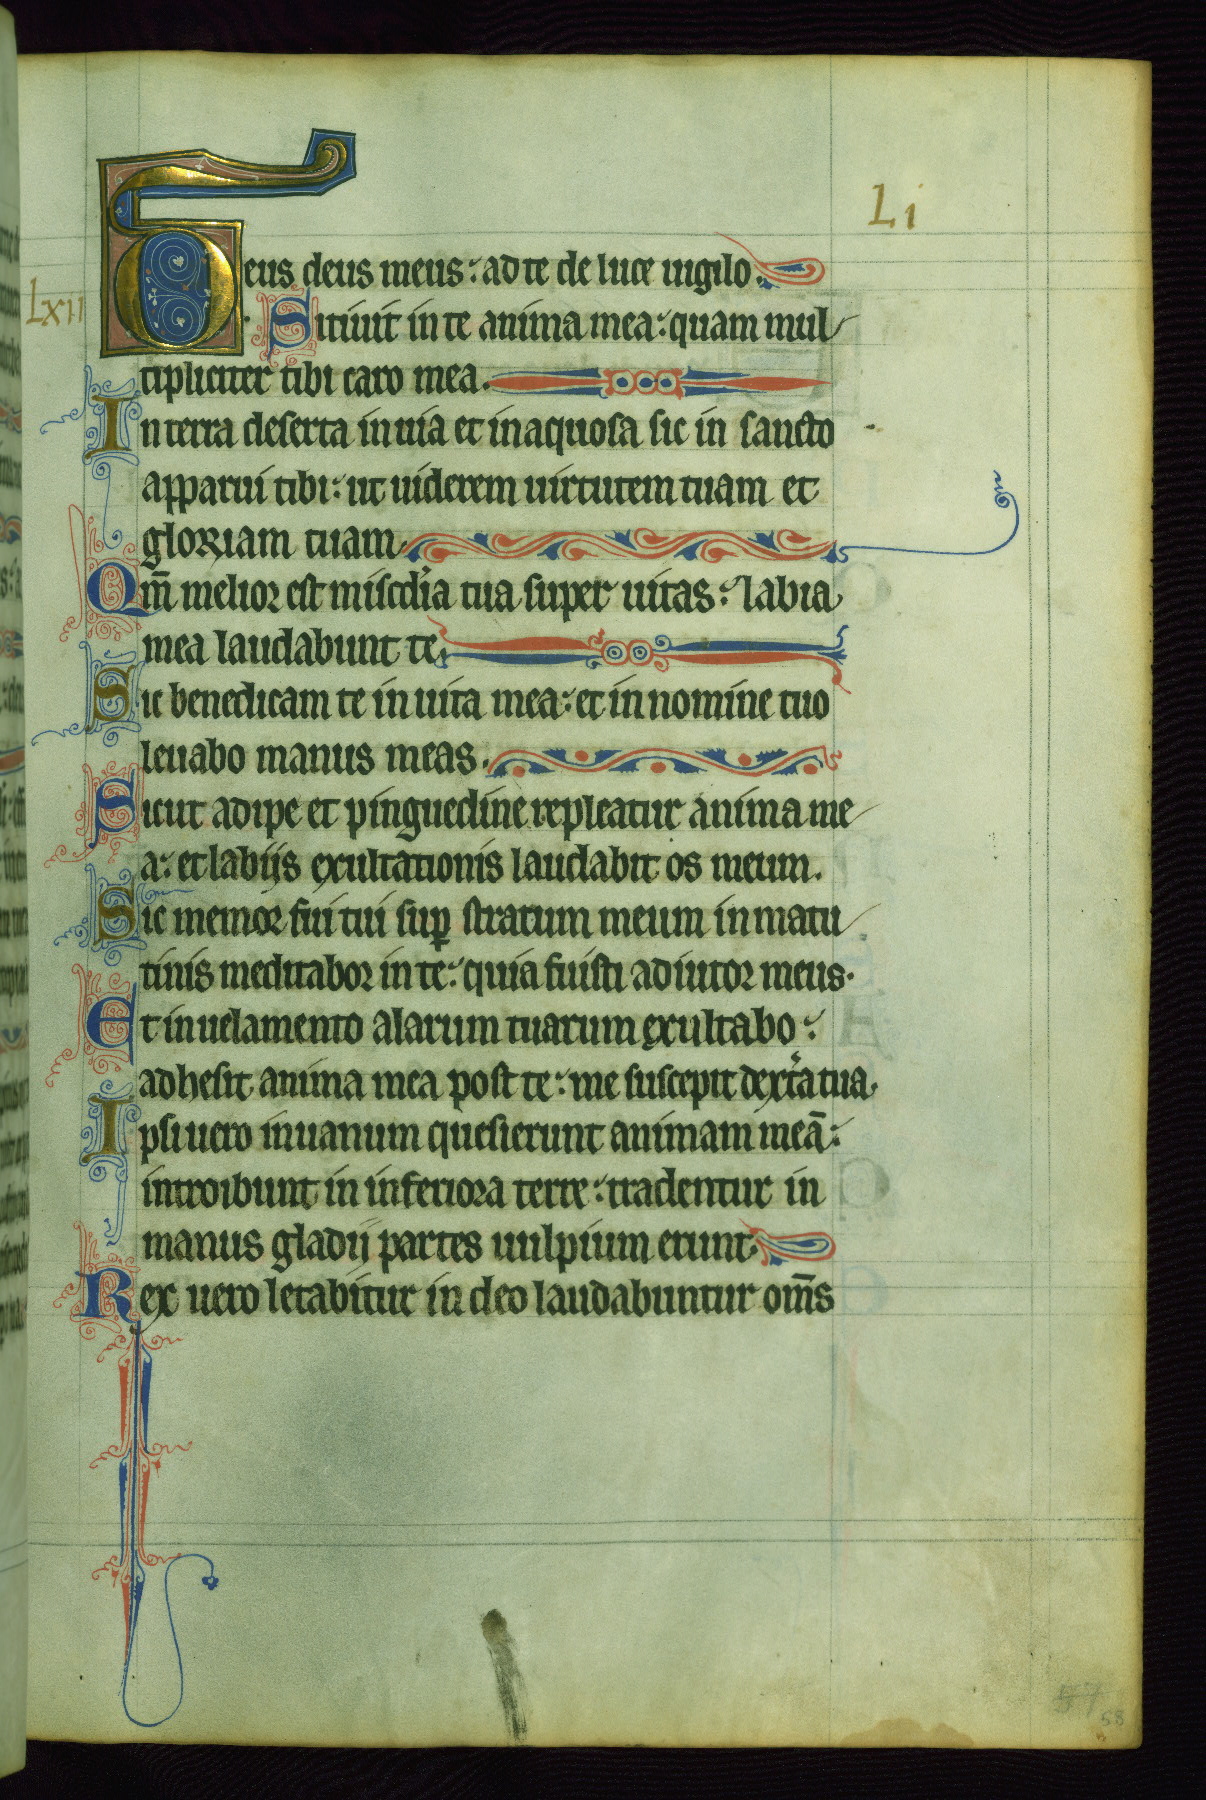 Li
Deus deus meus: ad te de luce uigilo.
Lxii
Sitiuit in te anima mea: quam mul
tipliciter tibi caro mea.
In terra deserta inuia et inaquosa sic in sancto
apparui tibi: ut uiderem uirtutem tuam et
gloriam tuam.
Qm̄ melior est miscd'ia tua super uitas: labia
mea laudabunt te.
Sic benedicam te in uita mea: et in nomine tuo
leuabo manus meas.
Sicut adipe et pinguedine repleatur anima me
a: et labijs exultationis laudabit os meum.
Sic memor fui tui suꝑ stratum meum in matu
tinis meditabor in te: quia fuisti adiutor meus.
Et in uelamento alarum tuarum exultabo:
adhesit anima mea post te: me suscepit dext'a tua.
Ipsi uero in uanum quesierunt animam meā:
introibunt in inferiora terre: tradentur in
manus gladij partes uulpium erunt.
Rex uero letabitur in deo laudabuntur om̄s
57
58